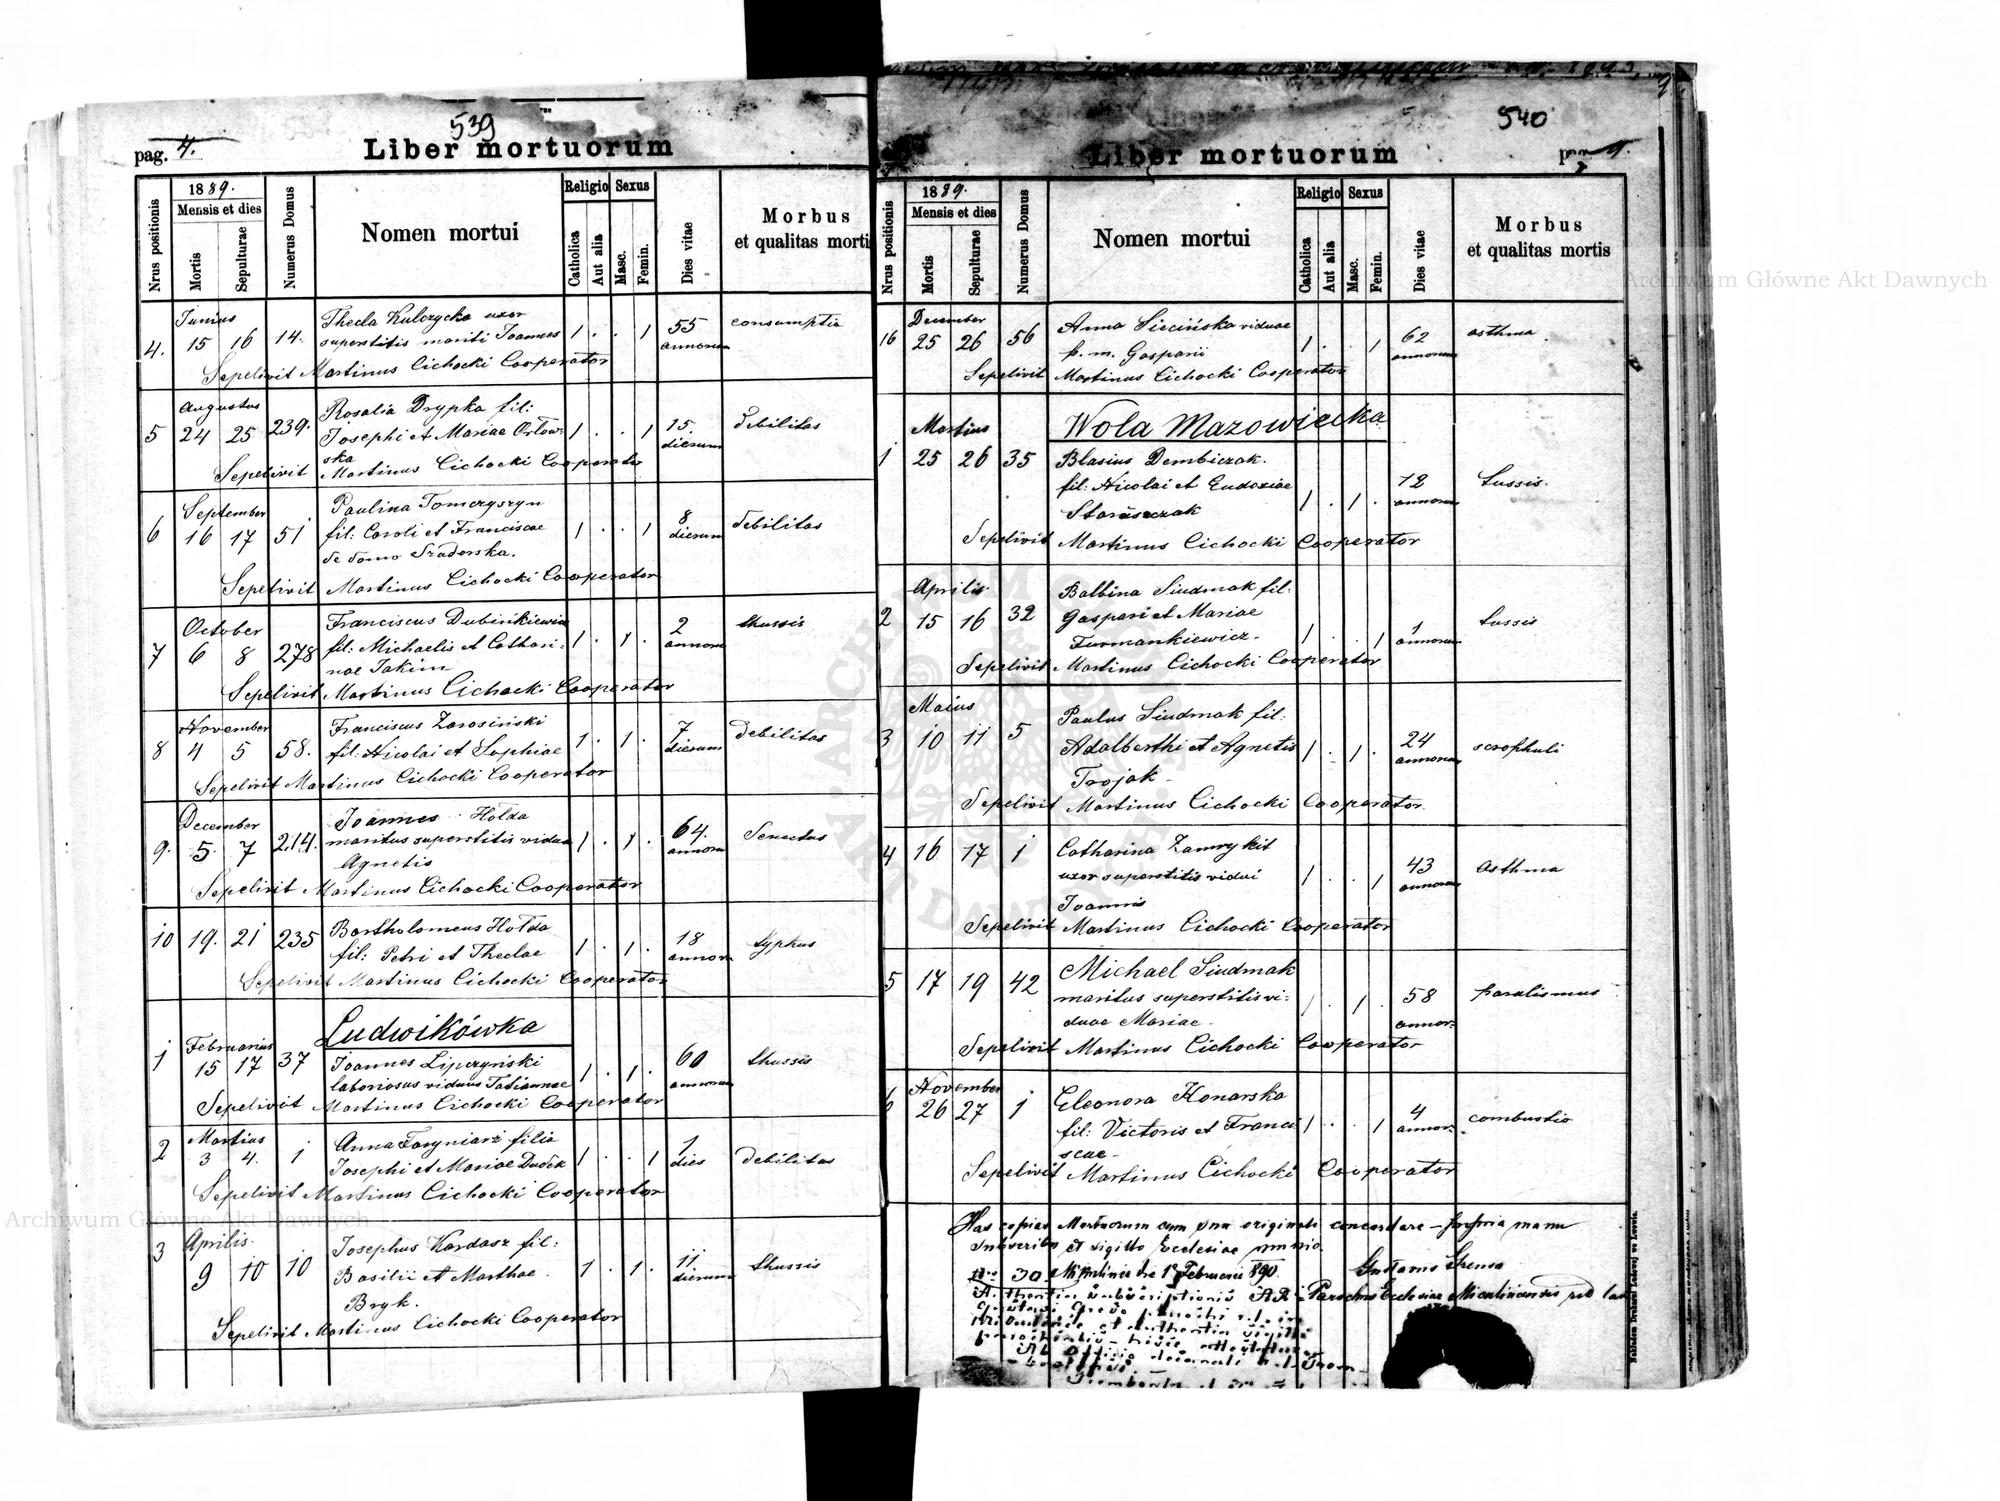 539
pag. 4.
Liber mortuorum
Nrus positionis
1889.
Mensis et dies
Mortis
Sepulturae
Numerus Domus
Nomen mortui
Religio
Catholica
Aut alia
Sexus
Masc.
Femin.
Dies vitae
Morbus
et qualitas morti
Junius
4. 15 16 14. Thecla Kulczycka uxor 1 . . 1 55 consumptio
superstitis mariti Joannes annorum
Sepelivit Martinus Cichocki Cooperator
Augustus
5 24 25 239. Rosalia Drypka fil: 1 . . 1 15. debilitas
Josephi et Mariae Orlow- dierum
ska
Sepelivit Martinus Cichocki Cooperator
September
6 16 17 51 Paulina Tomczyszyn 1 . . 1 8 debilitas
fil: Caroli et Franciscae dierum
de domo Sradorska.
Sepelivit Martinus Cichocki Cooperator
October
7 6 8 278 Franciscus Dubinkiewicz 1 . 1 . 2 thussis
fil: Michaelis et Cathari- annorum
nae Jakim
Sepelivit Martinus Cichocki Cooperator
November
8 4 5 58. Franciscus Zarosiński 1 . 1 . 7 debilitas
fil: Nicolai et Sophiae dierum
Sepelivit Martinus Cichocki Cooperator
December
9. 5. 7 214. Joannes Hołda 1 . 1 . 64. Senectus
maritus superstitis viduae annorum
Agnetis
Sepelivit Martinus Cichocki Cooperator
10 19. 21 235 Bartholomeus Hołda 1 . 1 . 18 typhus
fil: Petri et Theclae annorum
Sepelivit Martinus Cichocki Cooperator
Ludwikówka
Februarius
1 15 17 37 Joannes Lipczyński 1 . 1 . 60 thussis
laboriosus viduus Tatiannae annorum
Sepelivit Martinus Cichocki Cooperator
Martius
2 3 4. 1 Anna Faryniarz filia 1 . . 1 1 debilitas
Josephi et Mariae Dudek dies
Sepelivit Martinus Cichocki Cooperator
Aprilis.
3 9 10 10 Josephus Kardasz fil: 1 . 1 . 11 thussis
Basilii et Marthae dierum
Bryk.
Sepelivit Martinus Cichocki Cooperator
540
Liber mortuorum
Nrus positionis
1889.
Mensis et dies
Mortis
Sepulturae
Numerus Domus
Nomen mortui
Religio
Catholica
Aut alia
Sexus
Masc.
Femin.
Dies vitae
Morbus
et qualitas mortis
December
16 25 26 56 Anna Siecińska viduae 1 . . 1 62 asthma
p. m. Gasparii annorum
Sepelivit Martinus Cichocki Cooperator
Wola Mazowiecka
Martius
1 25 26 35 Blasius Dembiczak. 1 . 1 . 12 tussis.
fil: Nicolai et Eudoxiae annorum
Staraszczak
Sepelivit Martinus Cichocki Cooperator
Aprilis
2 15 16 32 Balbina Siudmak fil: 1 . . 1 1 tussis
Gaspari et Mariae annorum
Furmankiewicz-
Sepelivit Martinus Cichocki Cooperator
Maius
3 10 11 5 Paulus Siudmak fil: 1 . 1 . 24 scrophuli
Adalberthi et Agnetis annorum
Trojak-
Sepelivit Martinus Cichocki Cooperator.
4 16 17 1 Catharina Zamrykit 1 . . 1 43 asthma
uxor superstitis vidui annorum
Joannis
Sepelivit Martinus Cichocki Cooperator
5 17 19 42 Michael Siudmak 1 . 1 . 58 paralismus
maritus superstitis vi- annor:
duae Mariae-
Sepelivit Martinus Cichocki Cooperator
November
6 26 27 1 Eleonora Konarska 1 . . 1 4 combustio
fil: Victoris et Franci annor:
scae-
Sepelivit Martinus Cichocki Cooperator
Has copias Mortuorum cum suo originali concordare - propria manu
Subscribo et sigillo Ecclesiae
Nro 30 Februarii 890.
Parochus Ecclesiae Mikulincensis
Archiwum Główne Akt Dawnych
Archiwum Główne Akt Dawnych
ARCHIWUM GŁÓWNE AKT DAWNYCH